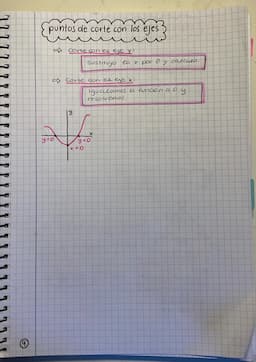 puntos de corte con los ejes
⇒ Corte con el eje y:
Sustituyo la x por 0 y calculo
⇒ Corte con el eje x:
Igualamos la función a 0 y
resolvemos
y
x
y=0
y=0
x=0
9